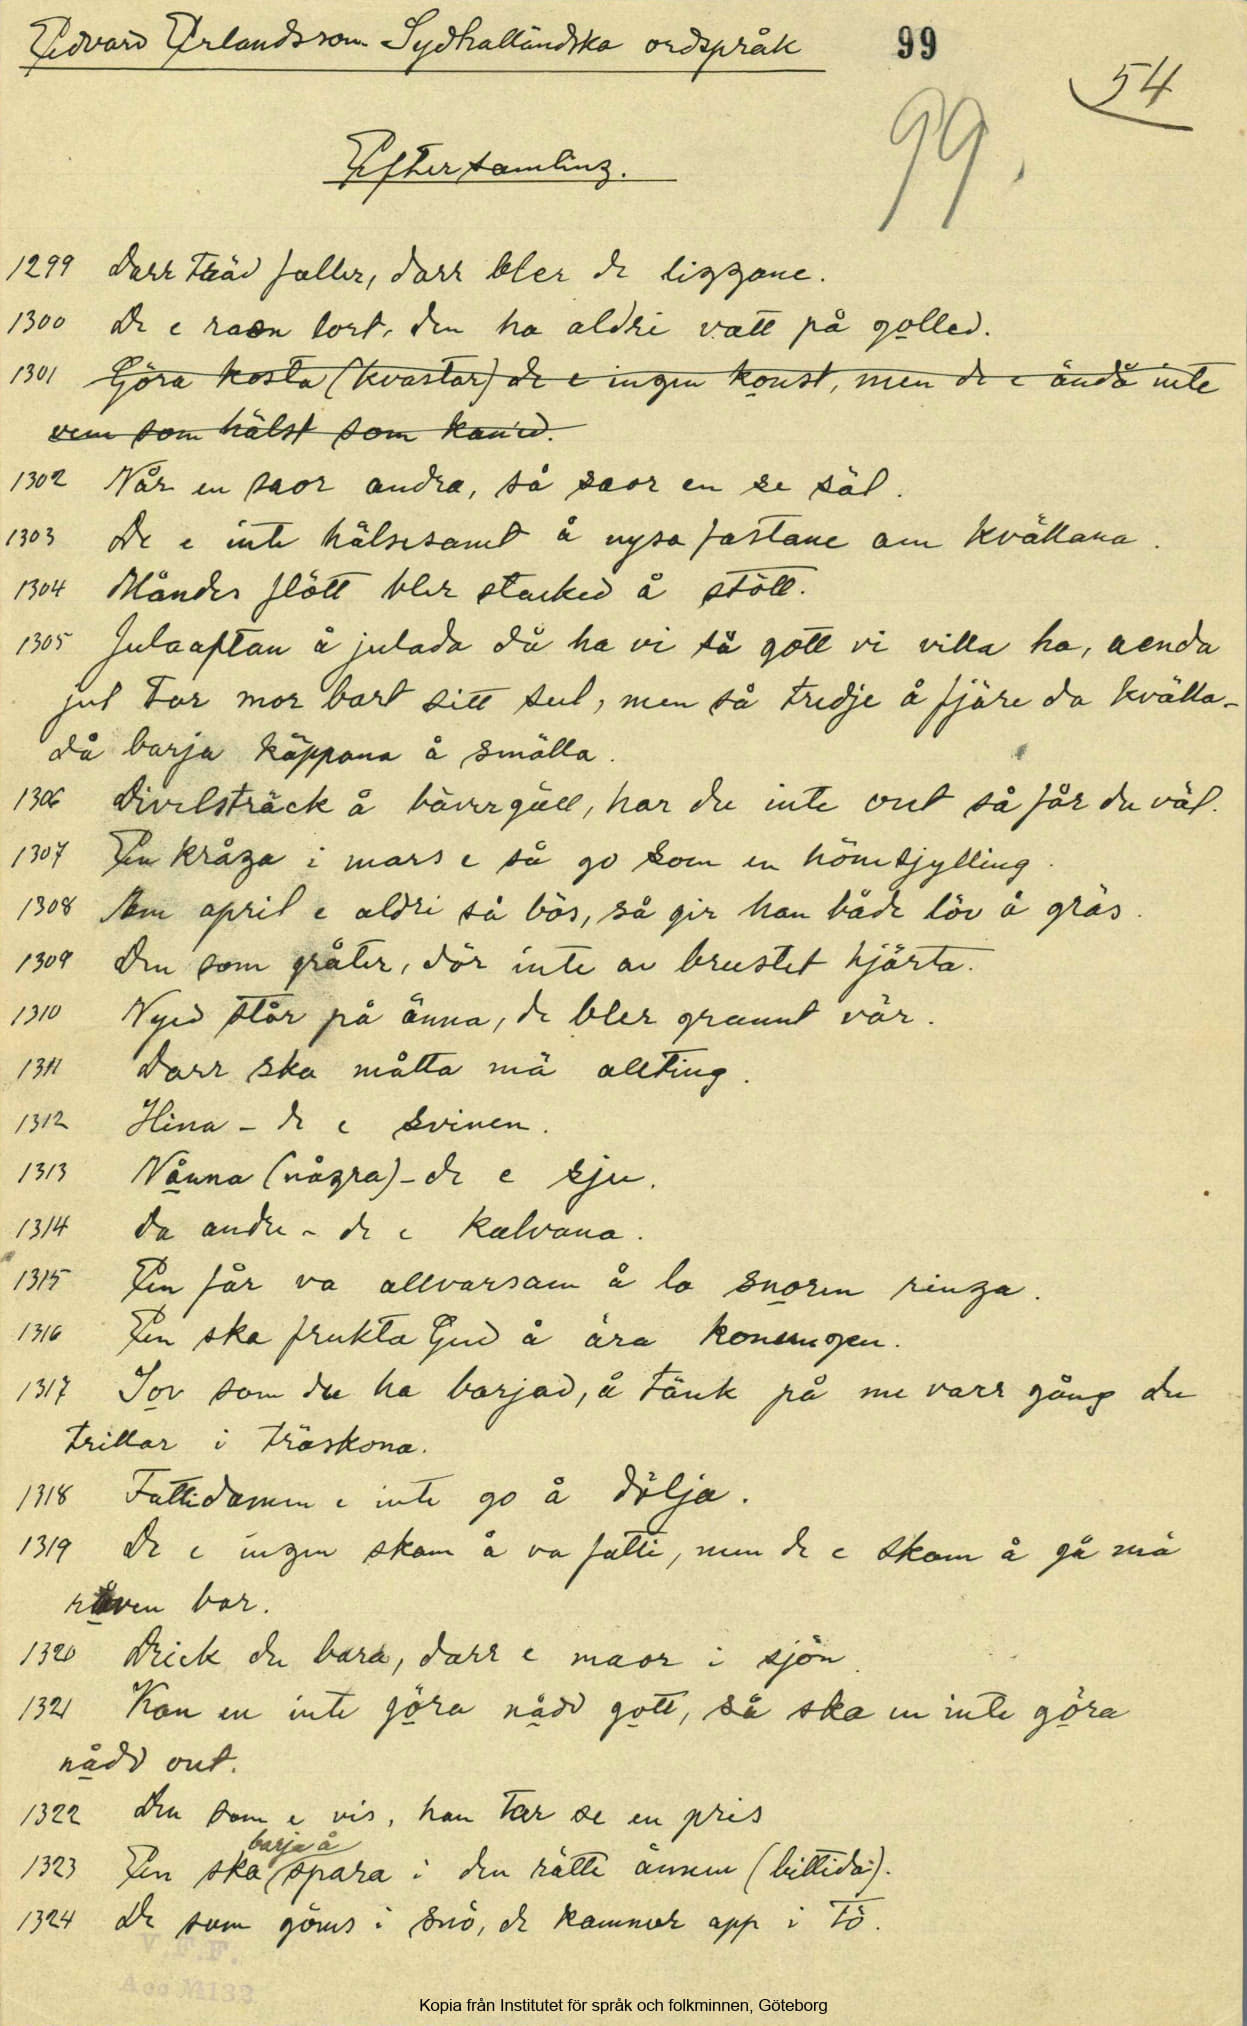 Edvard Erlandsson Sydhalländska ordspråk
99
54
99.
Eftersamling.
1299 Darr träd faller, darr bler de liggane.
1300 De e raen lort, den ha aldri vatt på golled.
1301 Göra kosta (kvastar) de e ingen konst, men de e ändå inte
vem som hälst som kan'ed.
1302 Når en saor andra, så saor en se säl.
1303 De e inte hälsesamt å nysa fastane am kvällana.
1304 Måndes flött bler stacked å stött.
1305 Julaaftan å julada då ha vi så gott vi villa ha, aenda
jul tar mor bart sitt sul, men så tredje å fjäre da kvälla-
då barja käppana å smälla.
1306 Divelsträck å bävergäll, har du inte ont så får du väl.
1307 En kråga i mars e så go som en hönsjylling.
1308 Am april e aldri så bös, så gir han både löv å gräs.
1309 Den som gråter, dör inte av brustet hjärta.
1310 Nyed står på änna, de bler grannt vär.
1311 Darr ska måtta mä allting.
1312 Hina - de e svinen.
1313 Nånna (några) - de e sju.
1314 Da andre - de e kalvana.
1315 En får va allvarsam å la snoren ringa.
1316 En ska frukta Gud å ära konungen.
1317 Sov som du ha barjad, å tänk på me varr gång du
trillar i träskona.
1318 Fattidomen e inte go å dölja.
1319 De e ingen skam å va fatti, men de e skam å gå mä
röven bar.
1320 Drick du bara, darr e maor i sjön.
1321 Kan en inte göra nådd gott, så ska en inte göra
nådd ont.
1322 Den som e vis, han tar se en pris
barja å
1323 En ska spara i den rätte ännen (bittida).
1324 De som göms i snö, de kammer app i tö.
V.F.F.
Acc № 132
Kopia från Institutet för språk och folkminnen, Göteborg